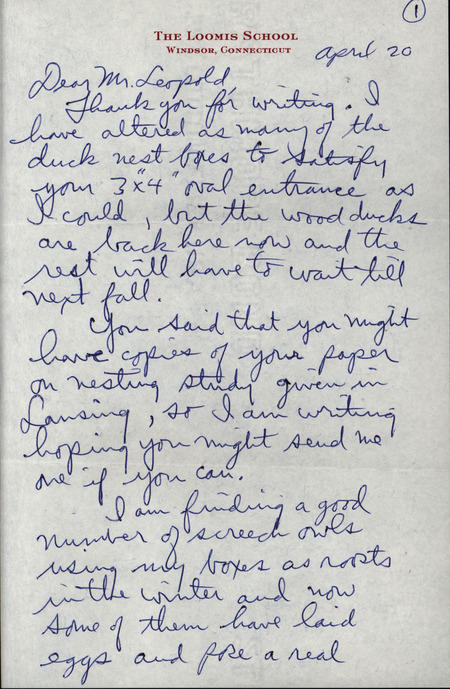 1
THE LOOMIS SCHOOL
WINDSOR, CONNECTICUT
April 20
Dear Mr. Leopold
Thank you for writing. I
have altered as many of the
duck nest boxes to satisfy
your 3"x4" oval entrance as
I could, but the wood ducks
are back here now and the
rest will have to wait till
next fall.
You said that you might
have copies of your paper
on nesting study given in
Lansing, so I am writing
hoping you might send me
one if you can.
I am finding a good
number of screech owls
using my boxes as roosts
in the winter and now
some of them have laid
eggs and pose a real